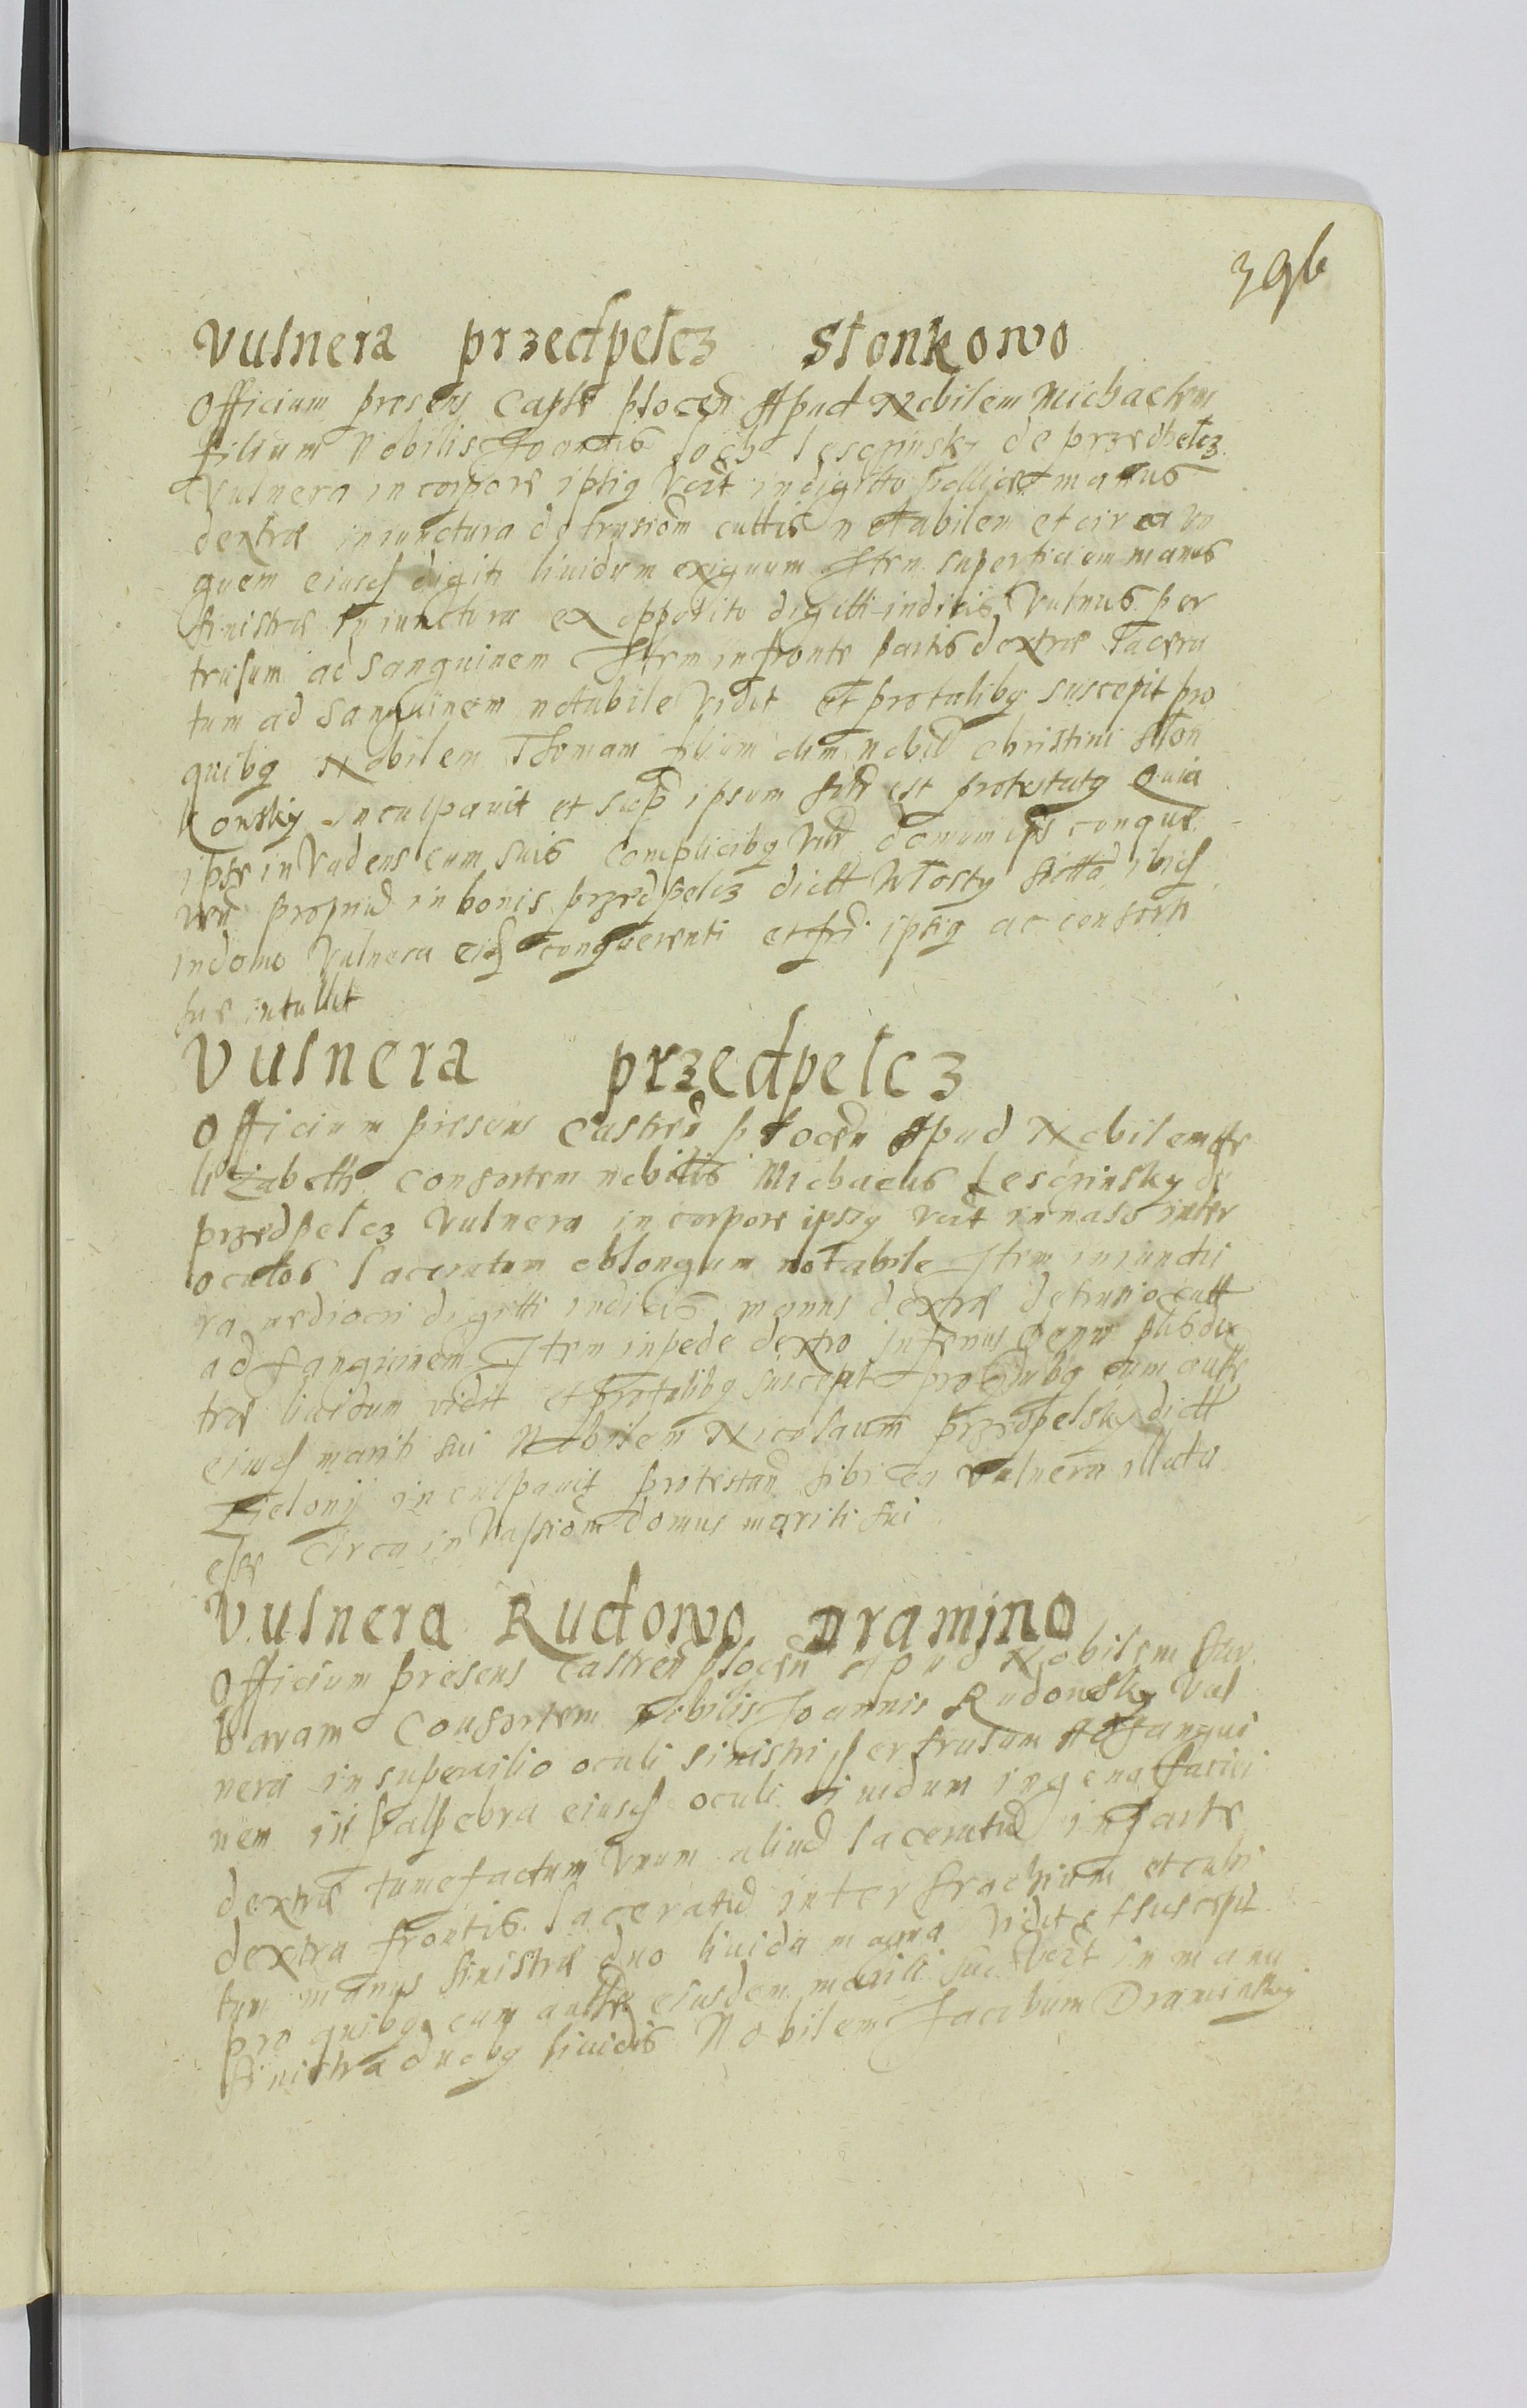 396
Vulnera przedpelcz Slonkowo
Officium presens Capte plocen Apud Nobilem Michaelem
filium Nobilis Joannis Lescziński de przedpelcz
Vulnera in corpore ipsig in digitto pollicis manus
dextræ in iunctura detrusiom cuttis notabilem et circa vn
guem eiusd digiti liuidum exiguum Item superficiem manus
sinistræ in iunctura ex opposito digitti indicis Vulnus per
trusum ad sanguinem Item in fronte partis dextræ lacera
tum ad sanguinem notabile Vidit et pro talibg suscepit pro
quibg Nobilem Thomam filium olim nobil christini Slon
kowsky inculpauit et ipsum est protestatg Quia
ipse inVadens cum suis complicibg domum ips conque
ren propriã in bonis przedpelcz dictt Wlosty ibid
in domo Vulnera eid conquerenti et ipsig ac consorti
sue intullit
Vulnera przedpelcz
Officium presens Castren plocen Apud Nobilem he
lizabeth consortem nobilis Michaelis Lescziński de
przedpelcz Vulnera in corpore ipsig in naso inter
oculos laceratum oblongum notabile Item in iunctu
ra mediocri digitti indicis manus dextræ detrusio cutt
ad sanguinem Item in pede dextro inferius genu dex
træ liuidum vidit et pro talibg suscepit pro quibg cum
eiusd mariti sui Nobilem Nicolaum przedpelsky dictt
Zielonÿ inculpauit protestan sibi ea Vulnera illata
esse circa inVasiom domus mariti sui
Vulnera Rudowo Dramino
Officium presens Castren plocen Apud Nobilem Bar
baram Consortem Nobilis Joannis Rudowsky Vul
nera in supercilio oculi sinistri pertrusum Ad sangui
nem in palpebra eiusd oculi liuidum in gena faciei
dextræ tumefactum vnum aliud laceratũ in parte
dextra frontis laceratũ inter brachium et cubi
tum manus sinistræ duo liuida magna Vidit et suscepit
pro quibg cum eiusdem mariti sui in manu
sinistra duobg liuidis Nobilem Jacobum Draminsky